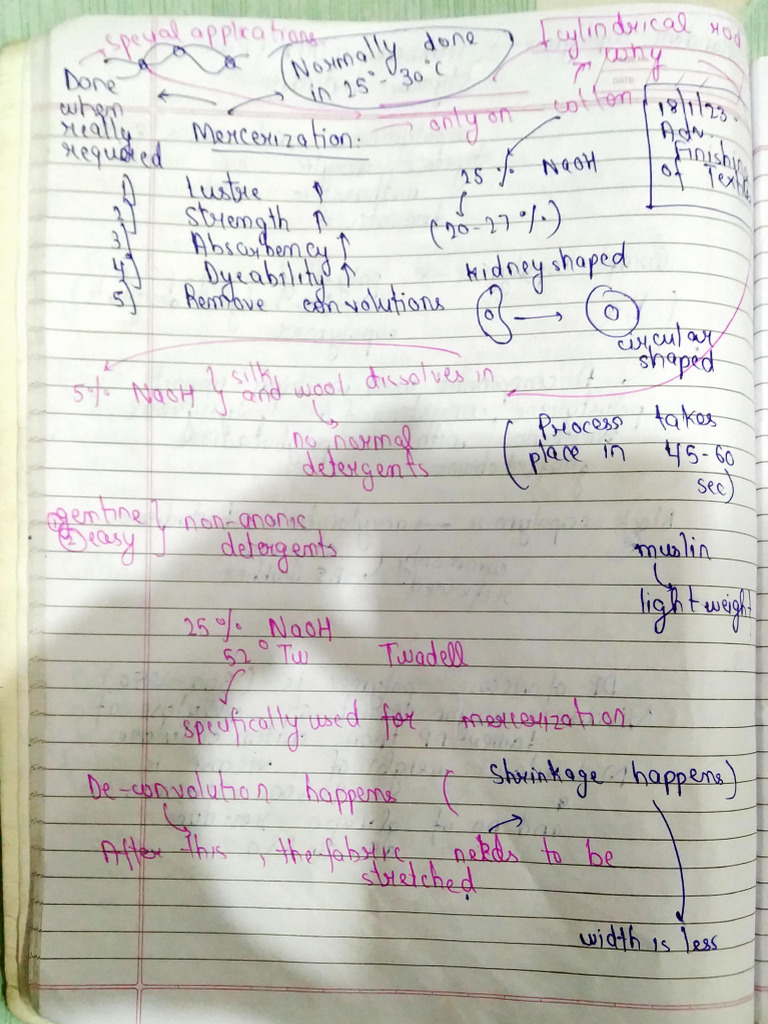 special applications
Normally done
in 25° - 30°C
cylindrical rod
why
DATE
Done
when
really
required
only on cotton
18/1/23.
Adv.
Finishing
of Textile
Mercerization:
25 % NaOH
(20-27%)
1) Lustre ↑
2) Strength ↑
3) Absorbency ↑
4) Dyeability ↑
5) Remove convolutions
kidney shaped
circular
shaped
5% NaOH } silk
and wool dissolves in
no normal
detergents
(Process takes
place in 45-60
sec)
① gentine
② easy } non-anonic
detergents
muslin
light weight
25% NaOH
52° Tw Twadell
specifically used for mercerization.
De-convolution happens (Shrinkage happens)
After this, the fabric needs to be
stretched
width is less